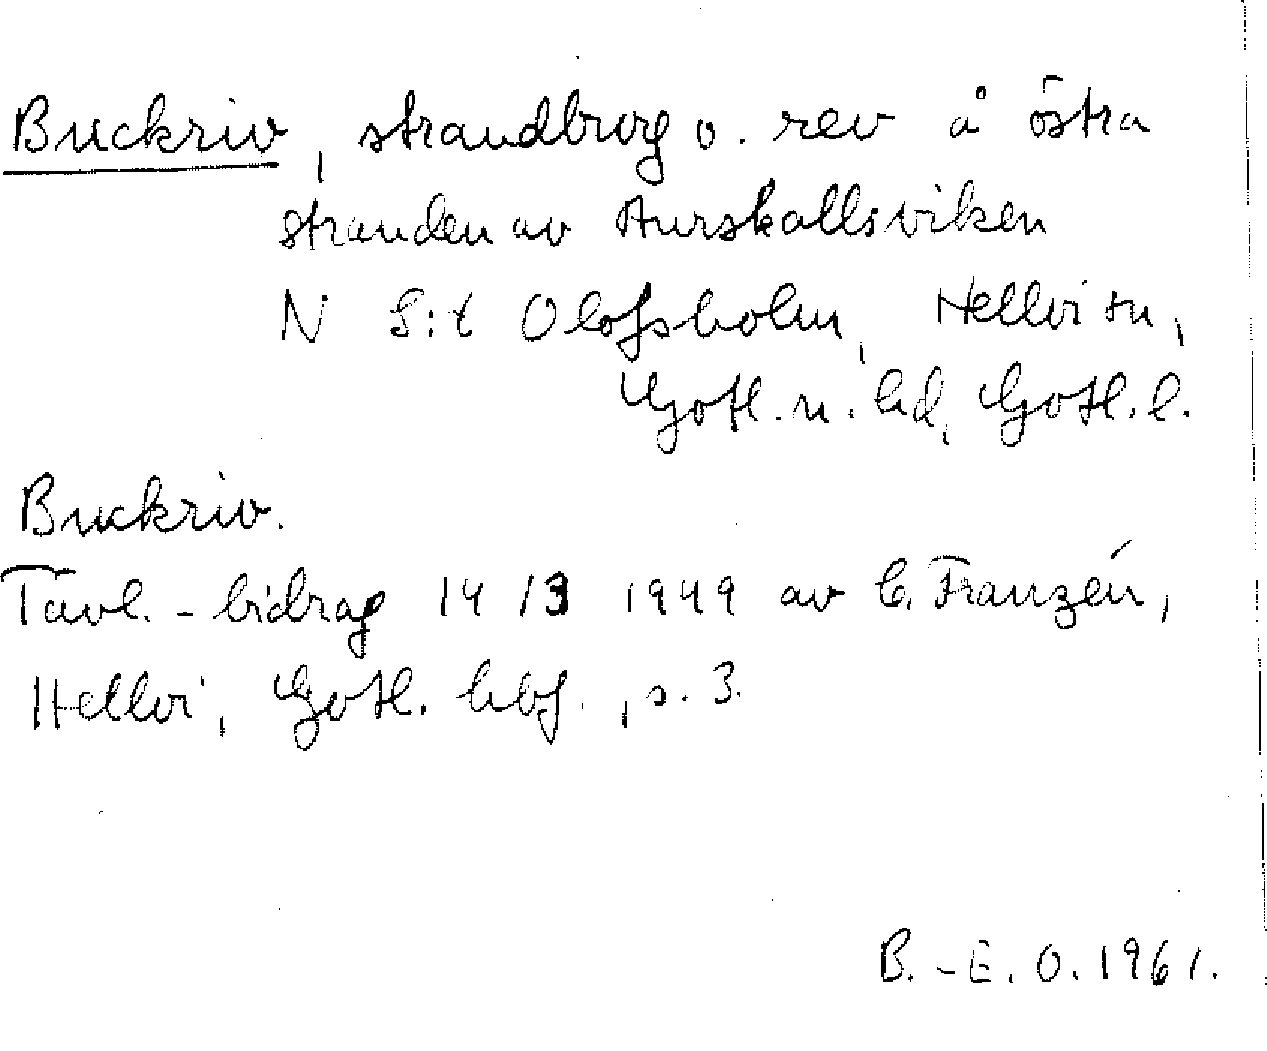 Buckriv, strandbrog o. rev å östra
stranden av Aurskallsviken
N S:t Olofsholm, Hellvi sn,
Gotl. n. hd, Gotl. l.
Buckriv.
Tävl.-bidrag 14/3 1949 av C. Franzén,
Hellvi, Gotl. hbf., s. 3.
B.-E. O. 1961.